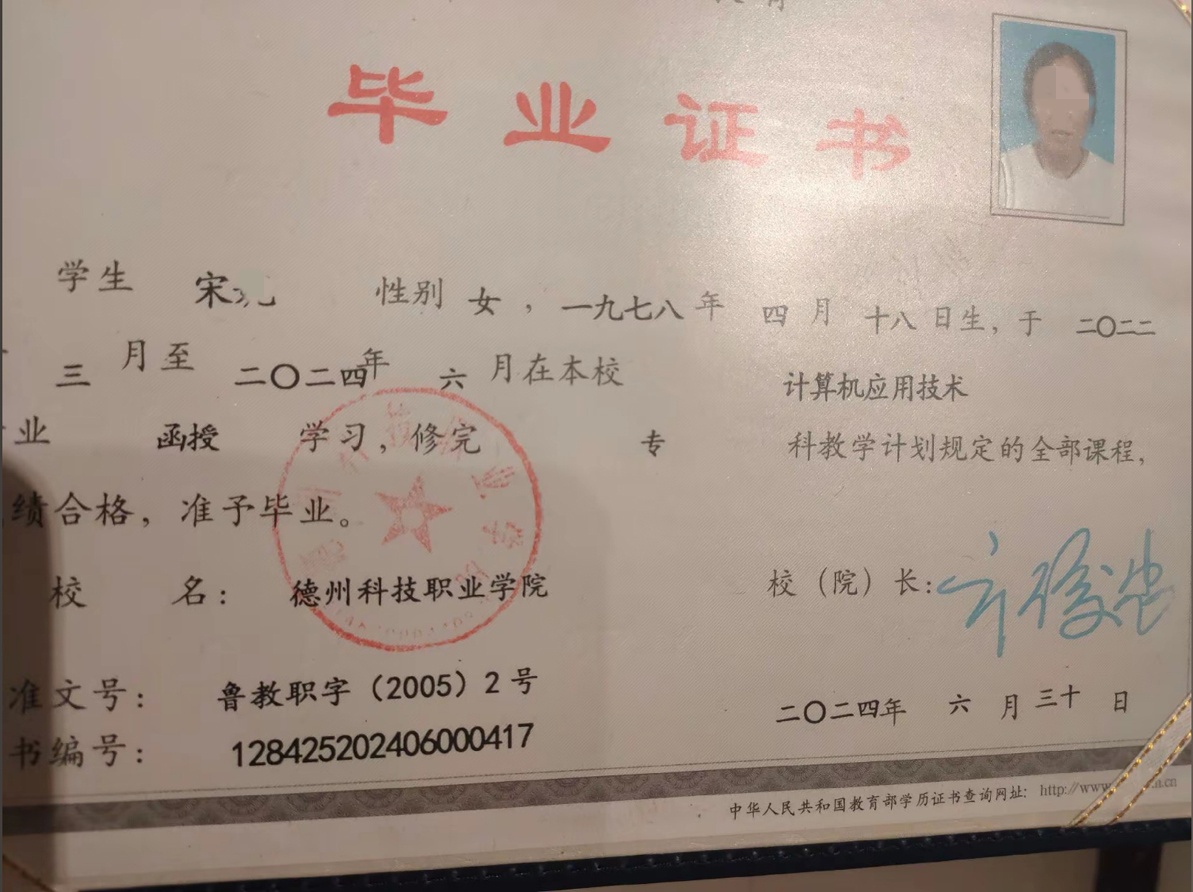 毕业证书
学生 宋 性别 女，一九七八年 四月 十八日生，于 二〇二二
三月至 二〇二四年 六月在本校 计算机应用技术
业 函授 学习，修完 专 科教学计划规定的全部课程，
绩合格，准予毕业。
校 名： 德州科技职业学院 校（院）长：
准文号： 鲁教职字（2005）2号 二〇二四年 六月三十日
书编号： 128425202406000417
中华人民共和国教育部学历证书查询网址： http://www